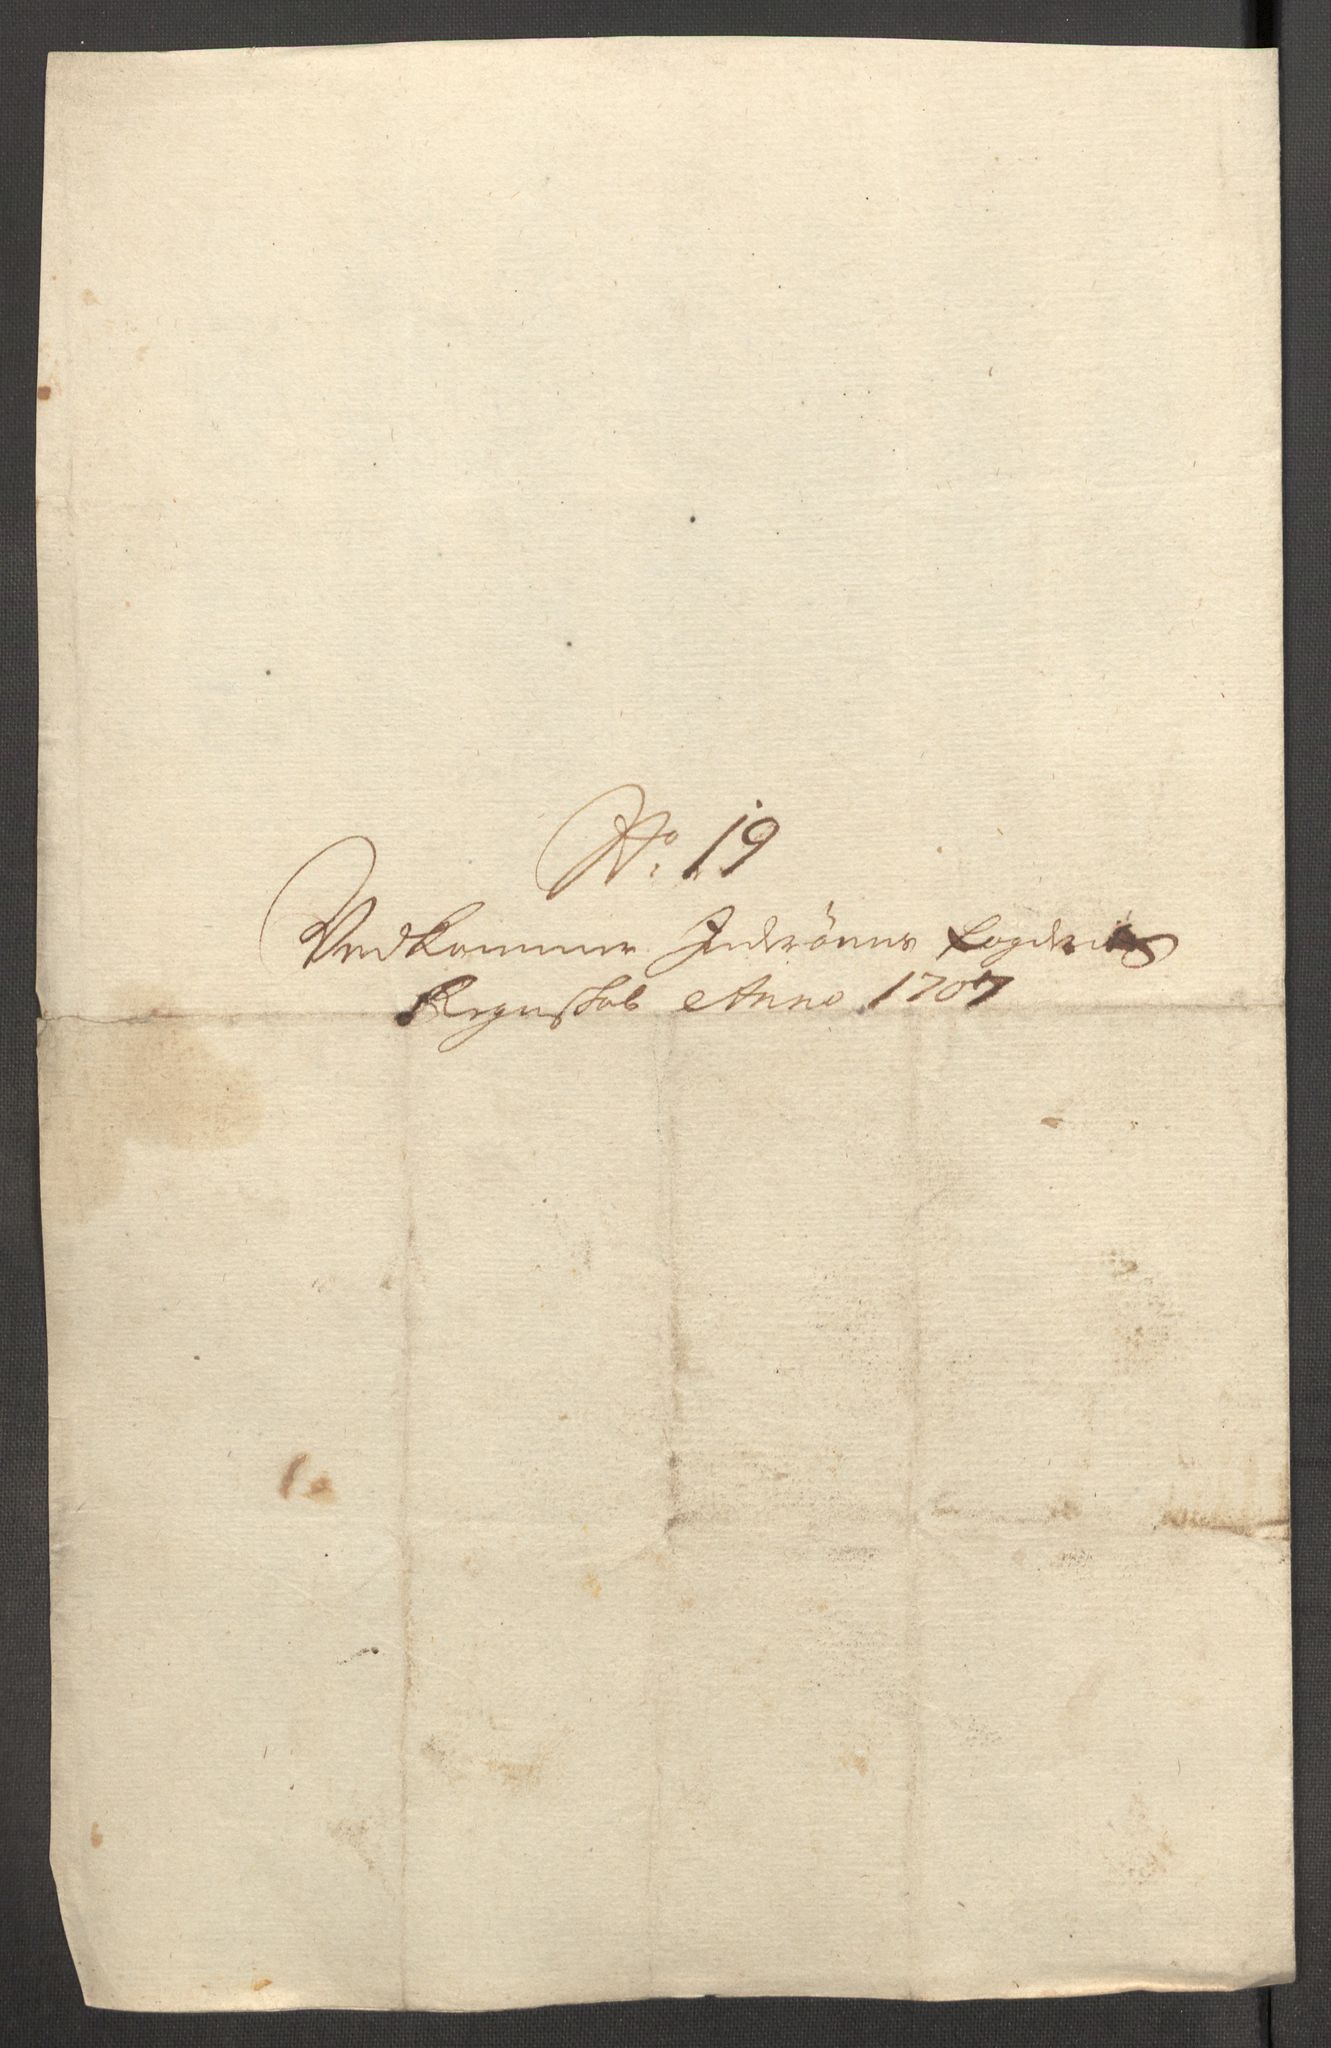 No. 19
Vedkommer Inderöens fogderies
Regnskab Anno 1707